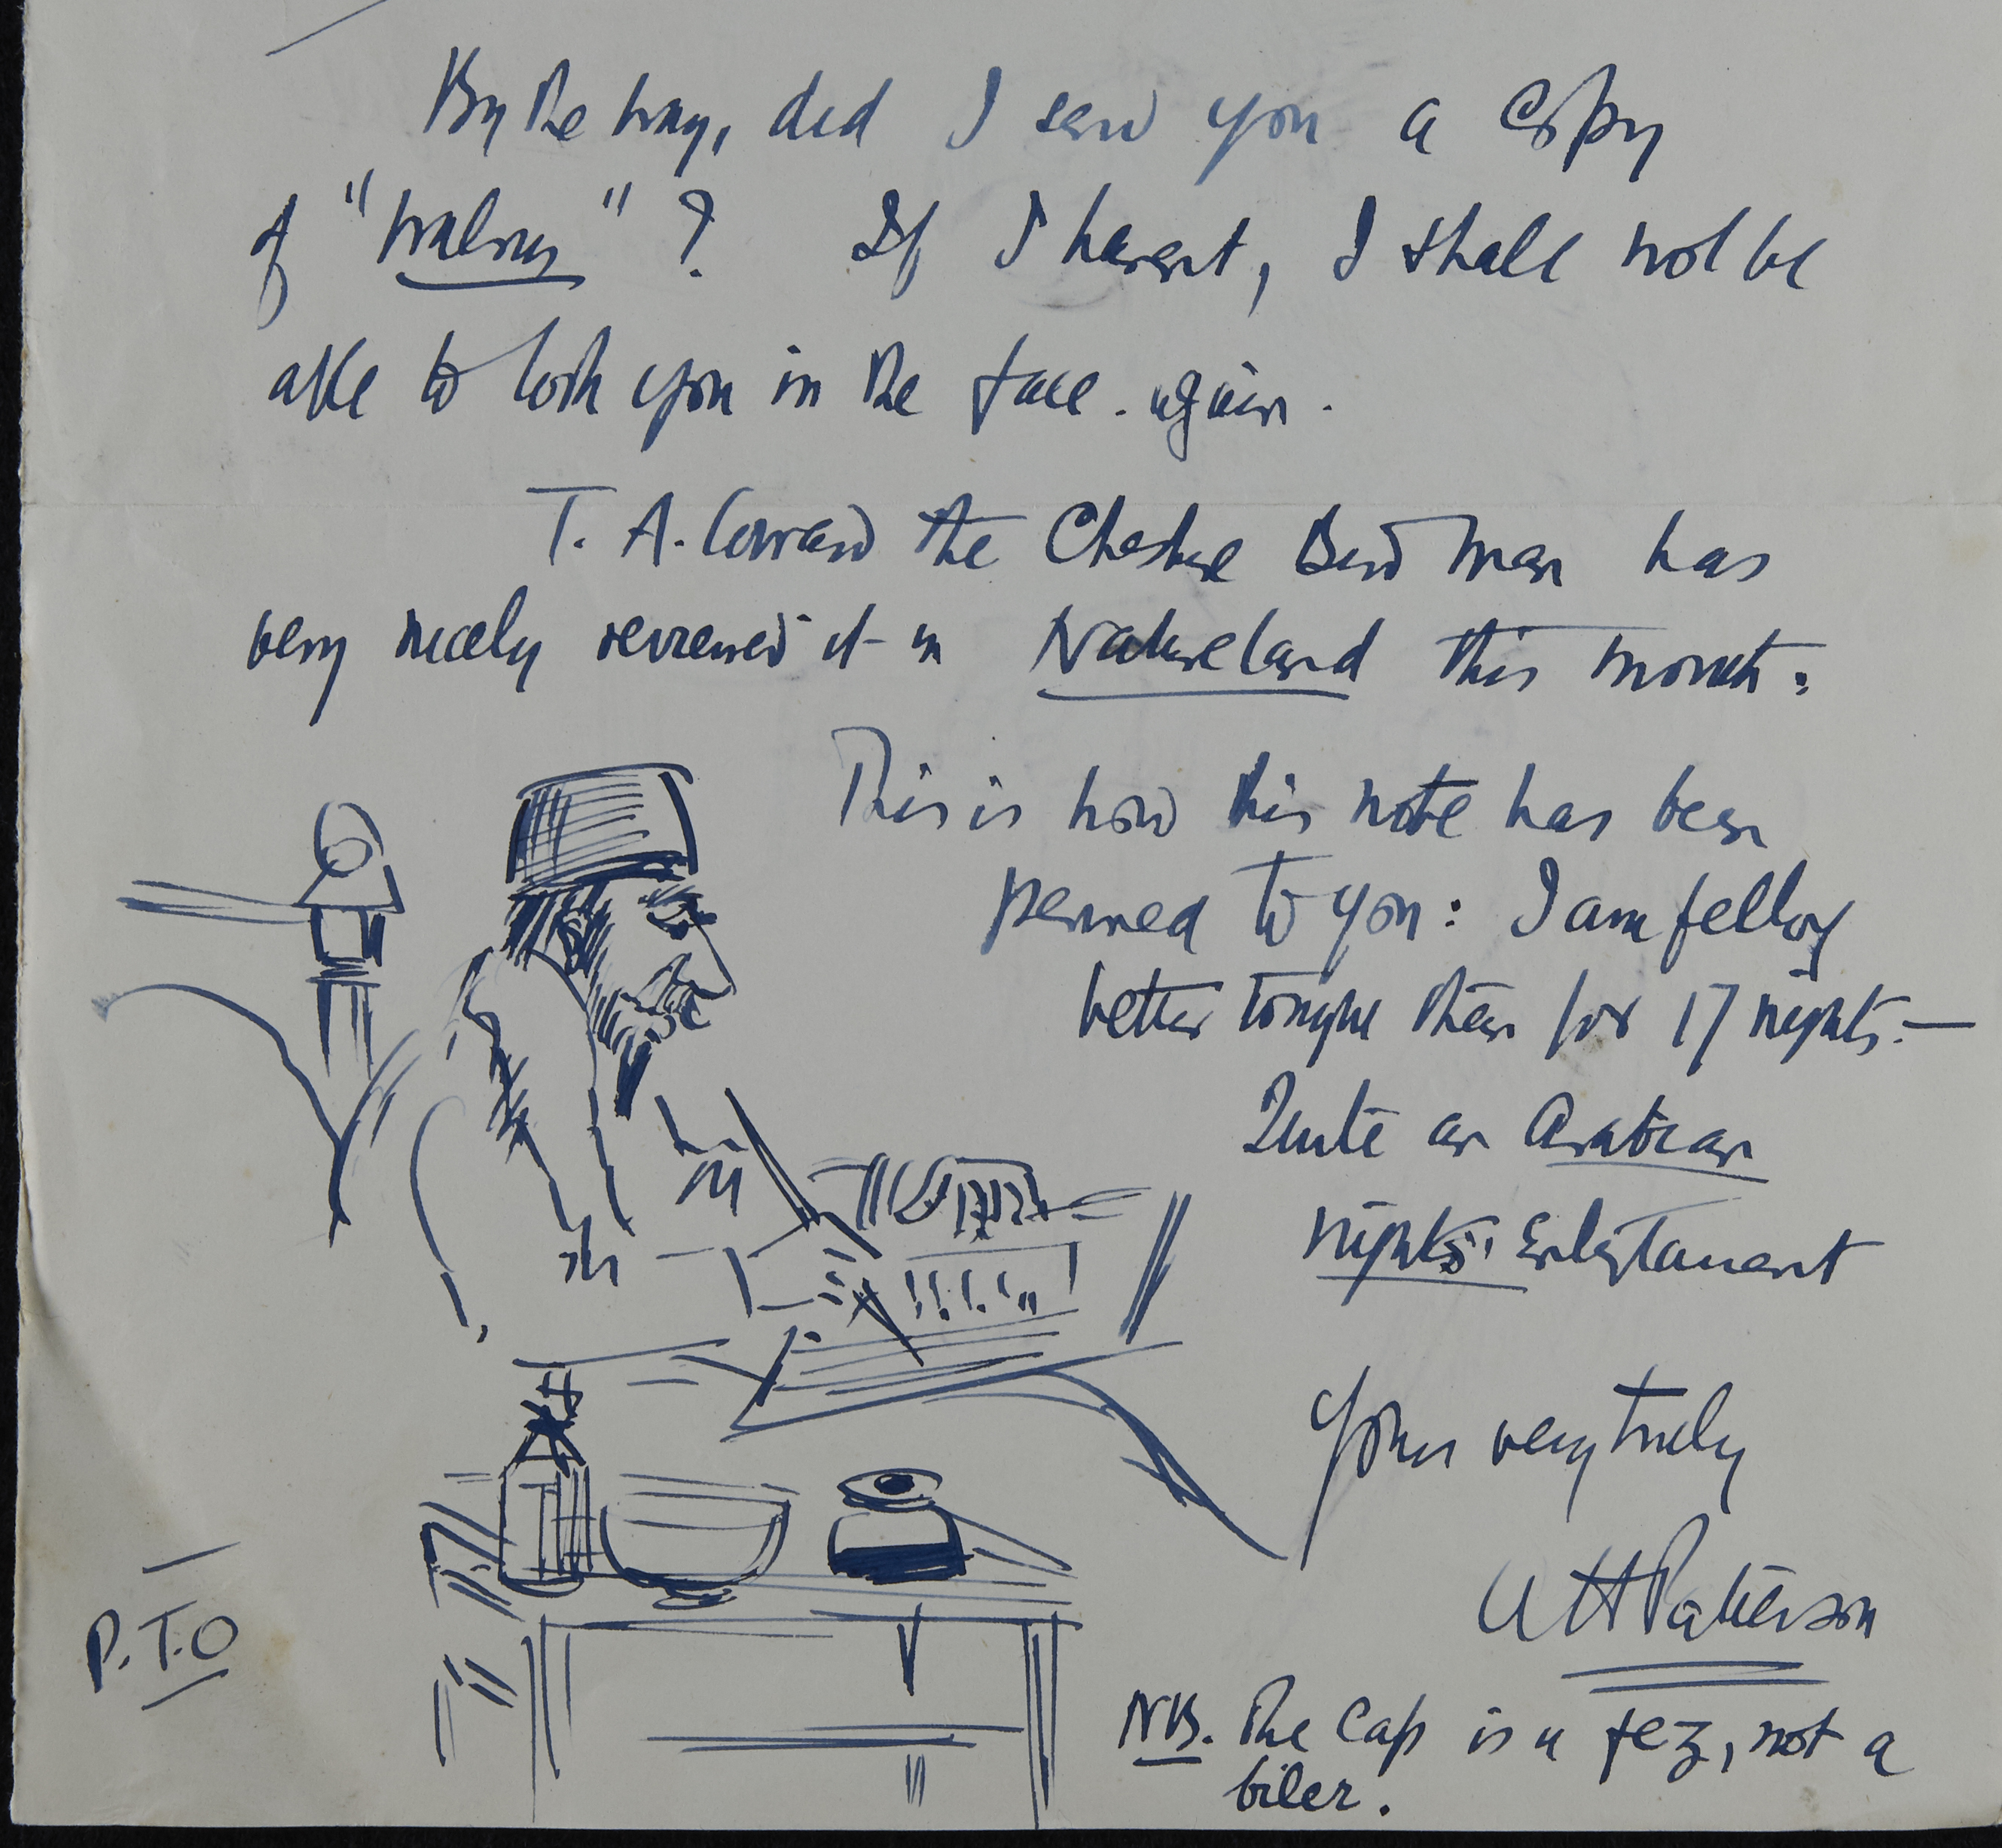 By the way, did I send you a copy
of "Walrus" ? If I havent, I shall not be
able to look you in the face. again.
T. A. Coward the Cheshire Bird Man has
very nicely reviewed it in Natureland this month:
This is how this note has been
penned to you: I am felling
better tonight than for 17 nights. —
Quite an Arabian
nights' Entertainment
Yours very truly
W H Patterson
P.T.O
NB. The Cap is a fez, not a
biler.